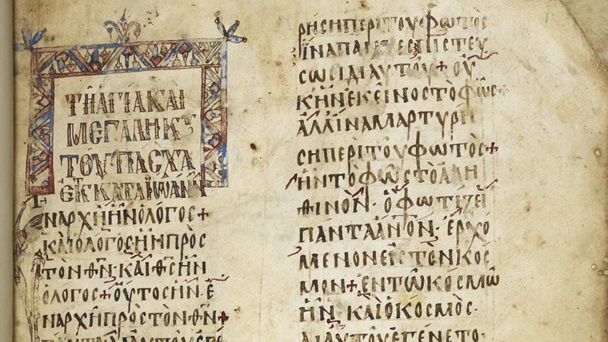 ΤΗ ΑΓΙΑ ΚΑΙ
ΜΕΓΑΛΗ Κ
ΤΟΥ ΠΑΣΧΑ
ΕΚ ΚΑΤΑ ΙΩΑΝΝ
ΕΝΑΡΧΗΗΝΟΛΟΓΟC+
ΚΑΙΟΛΟΓΟCΗΝΠΡΟC
ΤΟΝΘΝ· ΚΑΙΘCΗΝ
ΟΛΟΓΟC+ΟΥΤΟCΗΝ·Ε
ΝΑΡΧΗΠΡΟCΤΟΝΘΝ+
ΠΑΝΤΑΔΙΑΥΤΟΥΕΓΕ
ΡΗCΗΠΕΡΙΤΟΥΦΩΤΟC
ΙΝΑΠΑΝΤΕCΠΙCΤΕΥ
CΩCΙΔΙΑΥΤΟΥ+ΟΥ
ΚΗΝΕΚΕΙΝΟCΤΟΦΩC+
ΑΛΛΙΝΑΜΑΡΤΥΡΗ
CΗΠΕΡΙΤΟΥΦΩΤΟC+
ΗΝΤΟΦΩCΤΟΑΛΗ
ΘΙΝΟΝ· ΟΦΩΤΙΖΕΙ
ΠΑΝΤΑΑΝΟΝ· ΕΡΧΟ
ΜΕΝΟΝΕΙCΤΟΝΚΟC
ΜΟΝ+ΕΝΤΩΚΟCΜΩ
ΗΝ· ΚΑΙΟΚΟCΜΟC·
ΔΙΑΥΤΟΥΕΓΕΝΕΤΟ·